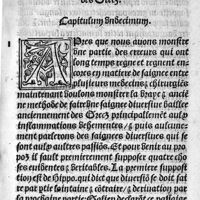 des Grecz.
Capitulum undecimum.
APres que nous avons monstre
une partie des erreurs qui ont
long temps regne et regnent en-
cores en matiere de saignee entre
plusieurs medecins / & chirurgiēs
maintenant voulōs monstrer la vraye & anciē
ne methode de faire une saignee diversive baillee
anciennement des Grecz principallemēt aulx
inflammations vehementes / & puis aulcune-
ment parlerons des saignees diversives qui se
font aulx aultres passiōs. Et pour venir au pro
poz il fault premierement supposer quatre cho
ses evidentes / & veritables. La premiere sup
positiō est de hippo. qui dict que diversiō se doit fai
re par ptie loïtaine / & cōtraire / & derivation par
la prochaine partie